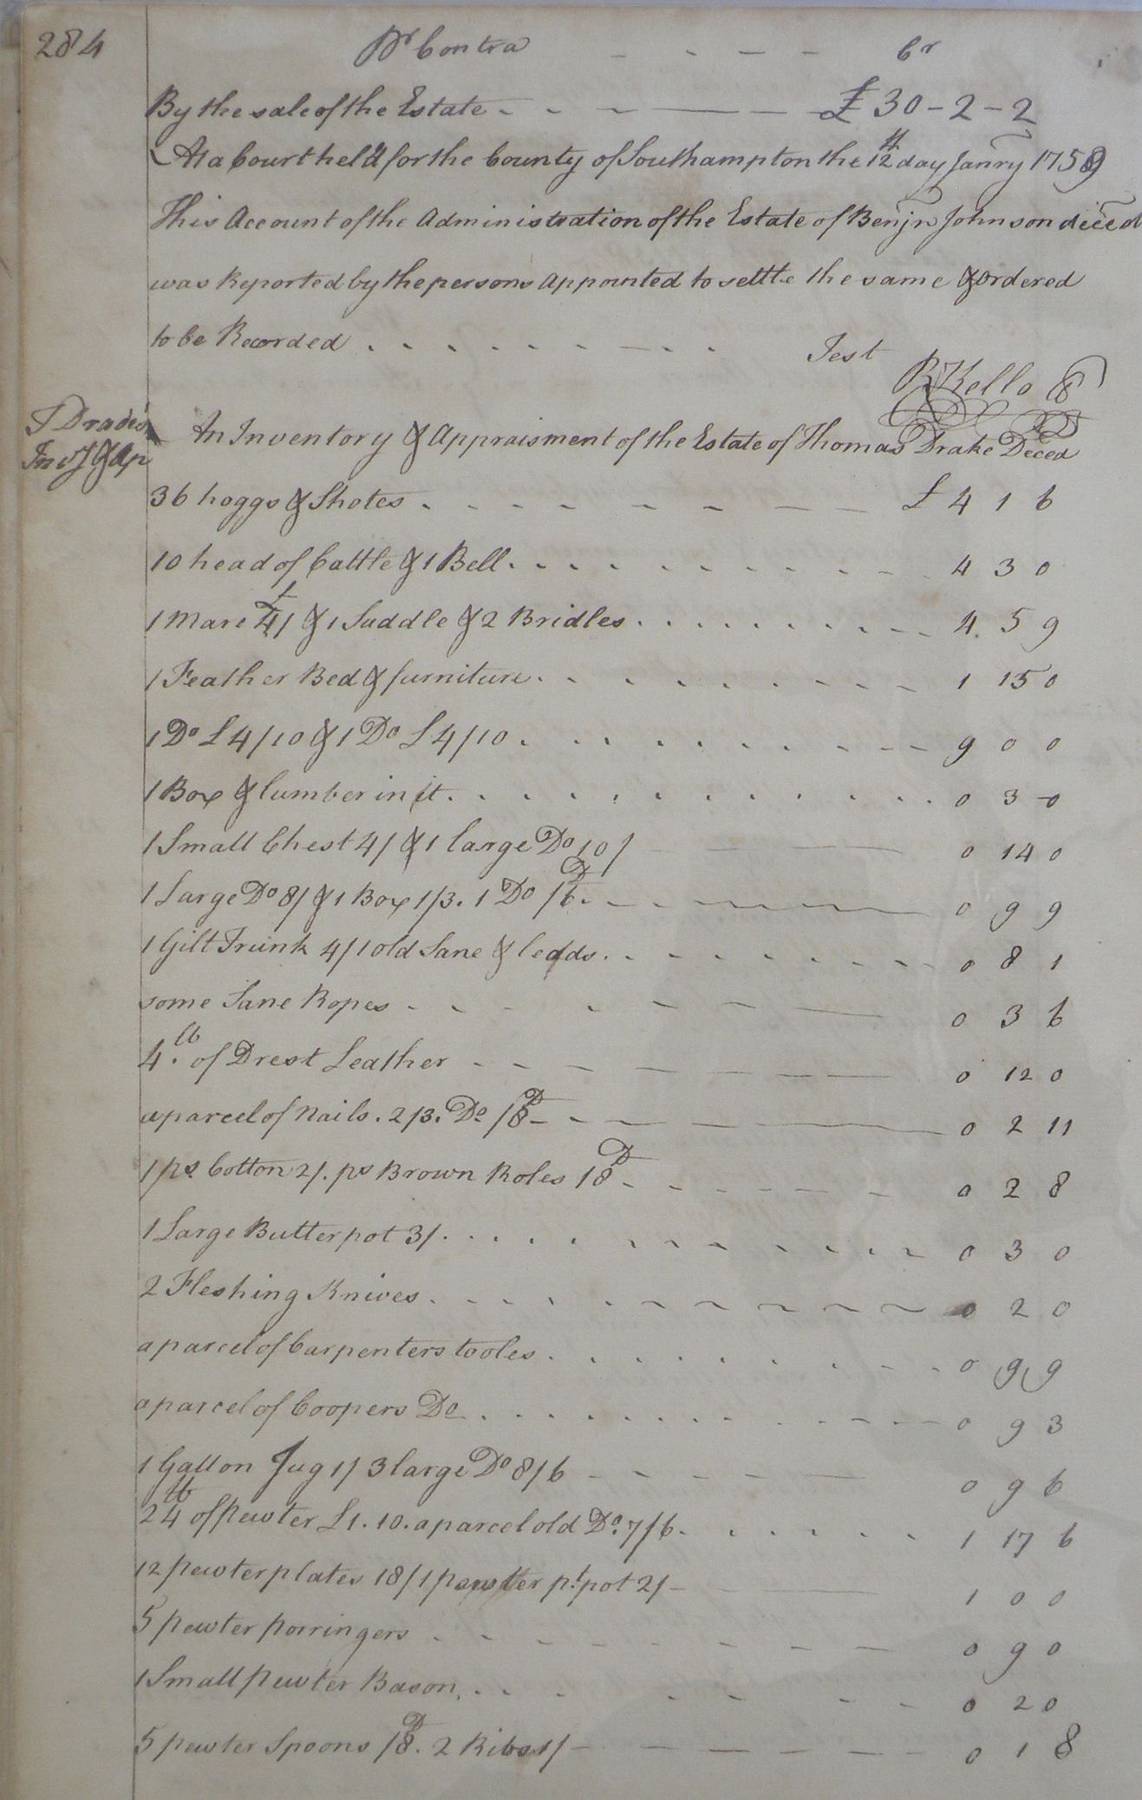 284
Pr Contra - - - - Cr
By the sale of the Estate - - - - £ 30-2-2
At a Court held for the County of Southampton the 12th day Janry 1759
This Account of the Administration of the Estate of Benjn Johnson deced
was Reported by the persons appointed to settle the same & Ordered
to be Recorded . . . . . Test
R Kello C
T Drake's
Inv & Ap
An Inventory & Appraisment of the Estate of Thomas Drake Deced
36 hoggs & Shotes . . . £ 4 1 6
10 head of Cattle & 1 Bell . . . 4 3 0
1 Mare £4/ & 1 Saddle & 2 Bridles . . . 4 5 9
1 Feather Bed & furniture . . . 1 15 0
1 Do £4/10 & 1 Do £4/10 . . . 9 0 0
1 Box & lumber in it . . . 0 3 0
1 Small Chest 4/ & 1 large Do 10/ 0 14 0
1 Large Do 8/ & 1 Box 1/3. 1 Do /6D . . . 0 9 9
1 Gilt Trunk 4/ 1 old Sane & leads . . . 0 8 1
some Sane Ropes . . . 0 3 6
4 lb of Drest Leather . . . 0 12 0
a parcel of Nails. 2/3. Do /8D . . . 0 2 11
1 ps. Cotton 2/. ps Brown Roles /8D . . . 0 2 8
1 Large Butter pot 3/ . . . 0 3 0
2 Fleshing Knives . . . 0 2 0
a parcel of Carpenters tooles . . . 0 9 9
a parcel of Coopers Do . . . 0 9 3
1 Gallon Jug 1/ 3 large Do 8/6 . . . 0 9 6
24 lb of Pewter £1. 10. a parcel old Do. 7/6 . . . 1 17 6
12 pewter plates 18/ 1 pewter pt. pot 2/ 1 0 0
5 pewter porringers . . . 0 9 0
1 Small pewter Bason . . . 0 2 0
5 pewter Spoons /8D. 2 Ribs 1/ . . . 0 1 8